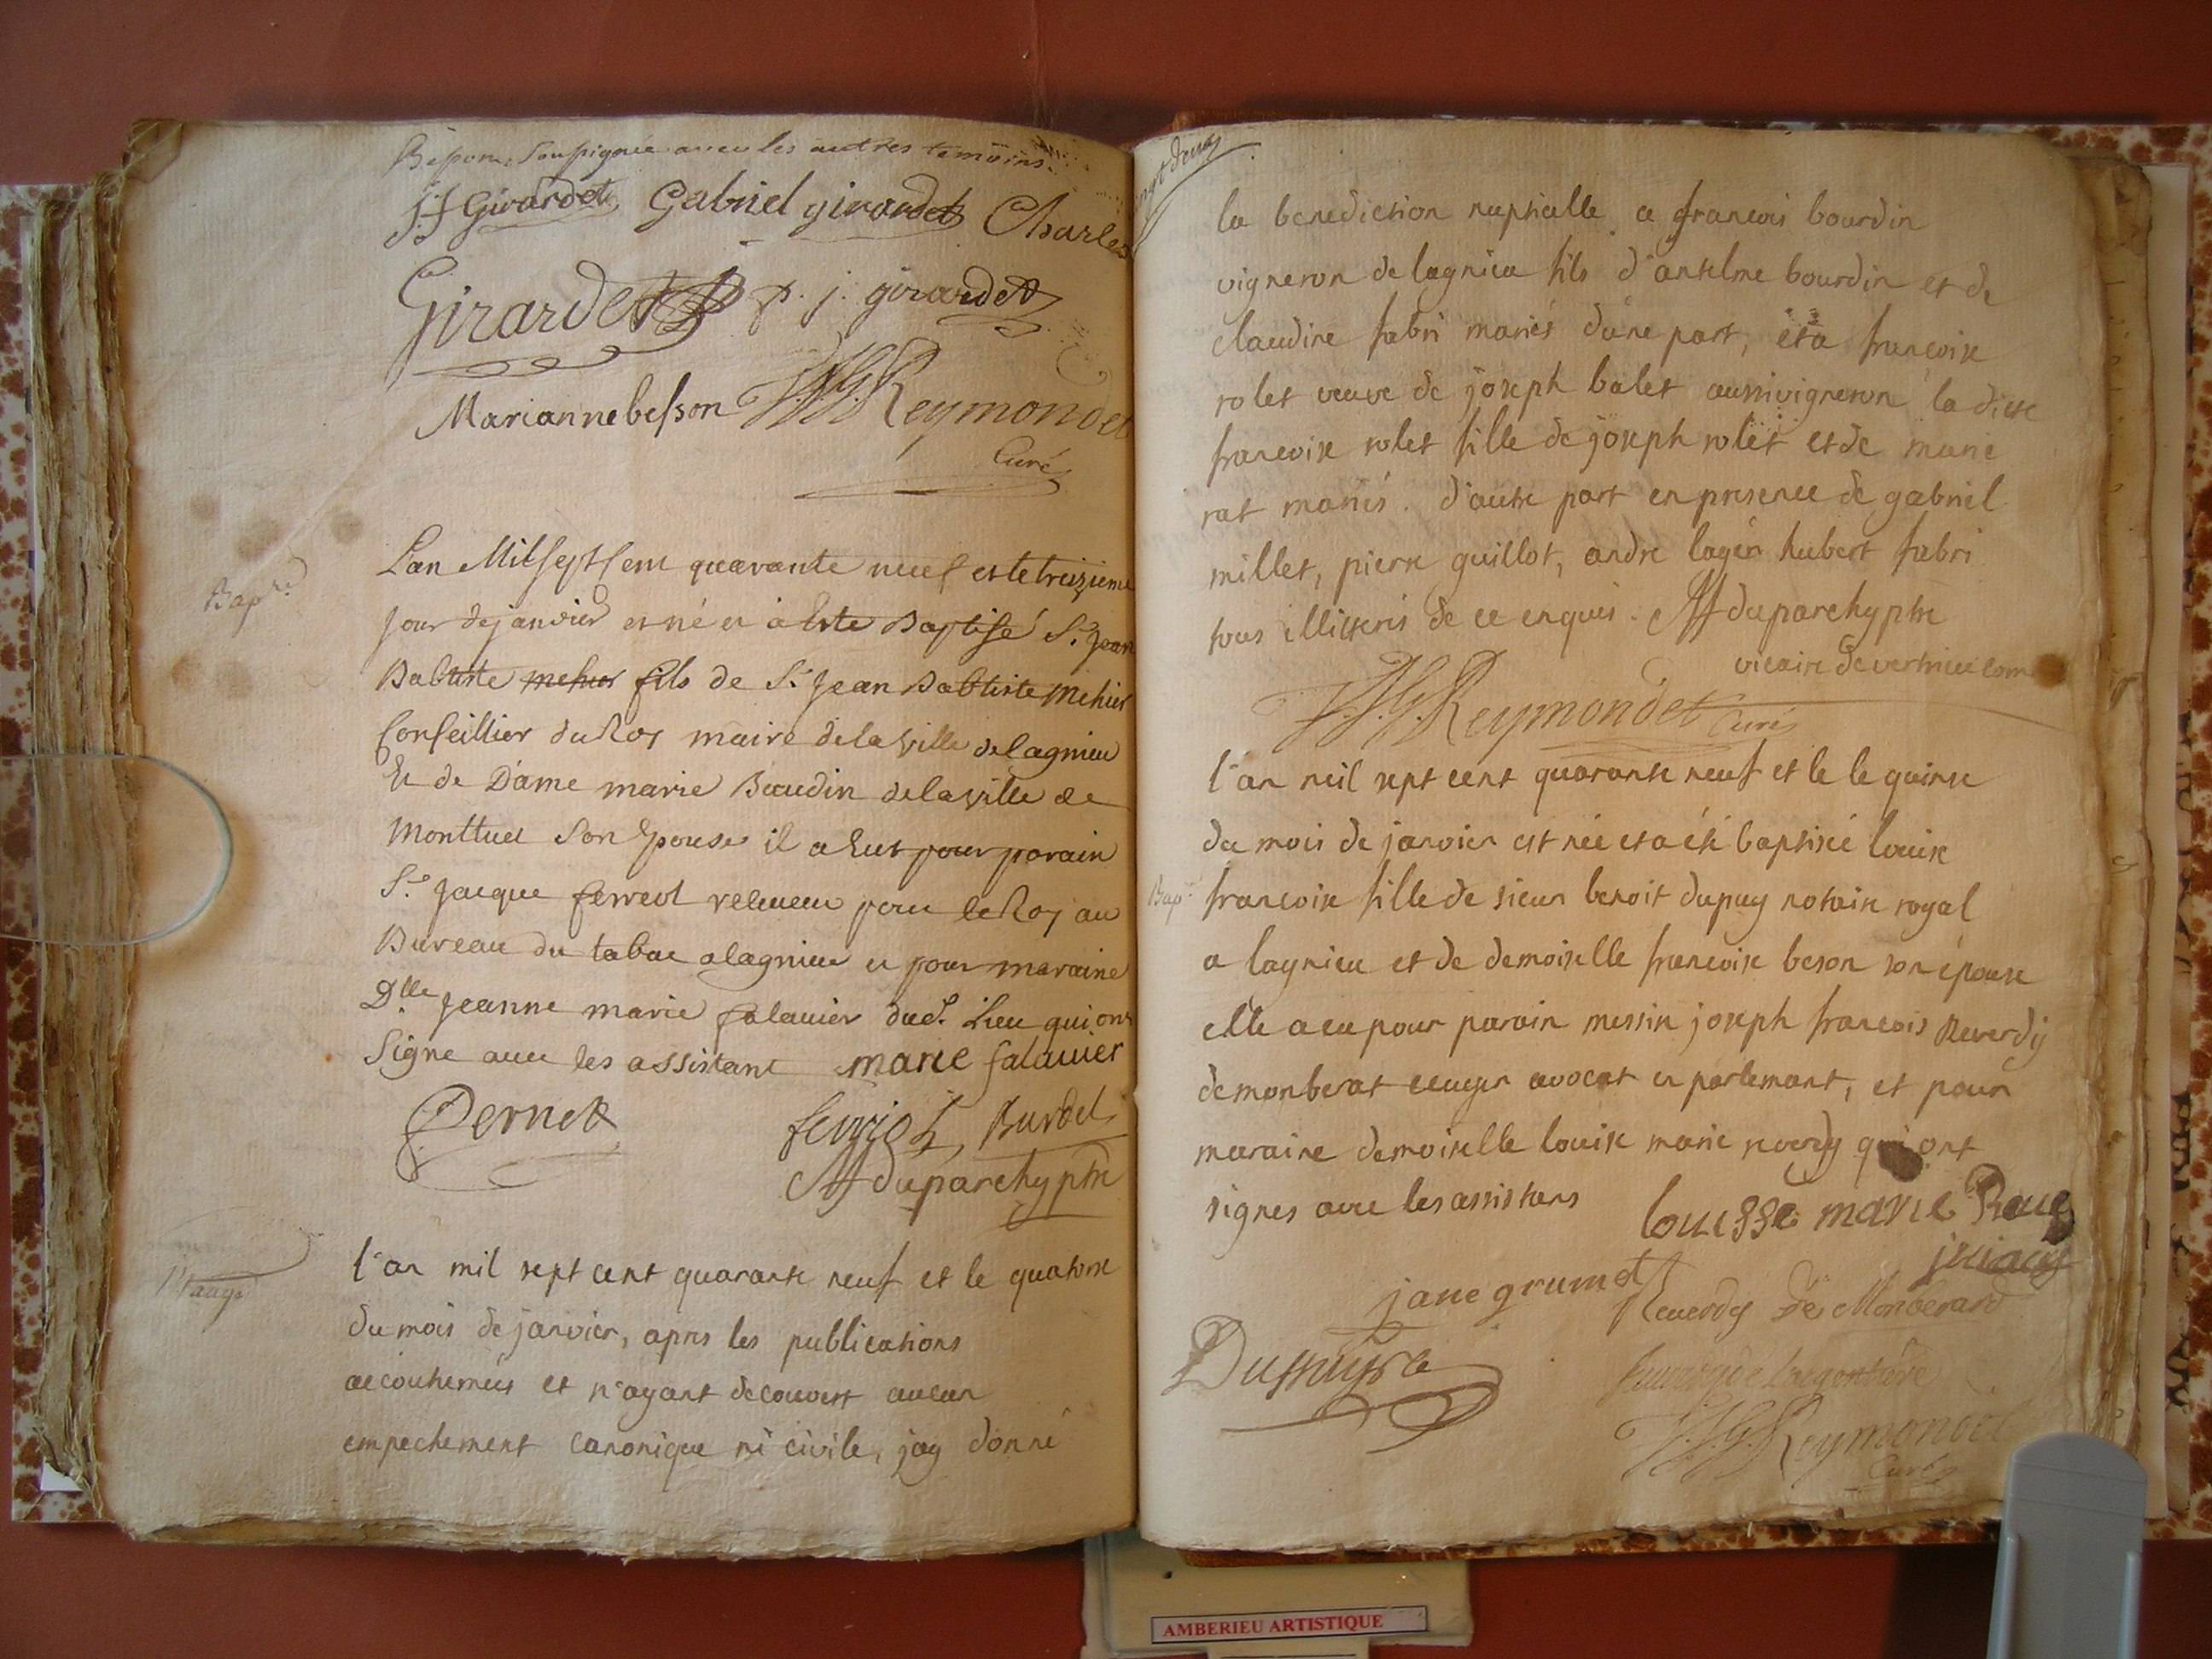 soussignée avec les autres temoins.
JF Girardet Gabriel girardet Charles
Girardet p. j. girardet
Marianne besson J.H.G. Reymondet
Curé
Bap.me
L'an Mil sept Cent quarante neuf et le treizieme
Jour de janvier est né et à este Baptisé S.r Jean
Babtiste mehier fils de S.r Jean Babtiste mehier
Conseillier du Roy maire de la ville de lagnieu
Et de Dame marie Baudin de la ville de
Montluel Son Epouse il a Eut pour parain
S.r Jacque ferreol receveur pour le Roy au
Bureau du tabac a lagnieu et pour maraine
D.lle Jeanne marie falavier dud. Lieu qui ont
Signe avec les assistant marie falavier
Pernet ferriol Burdel
duparchy ptre
l'an mil sept cent quarante neuf et le quatorse
du mois de janvier, apres les publications
accoutumées et n'ayant decouvert aucun
empechement canonique ni civile, jay donné
vingt deux
la benediction nuptialle a francois bourdin
vigneron de lagnieu fils d'anselme bourdin et de
claudine fabri mariés d'une part, et a francoise
rolet veuve de joseph balet aussi vigneron la dite
francoise rolet fille de joseph rolet et de marie
rat mariés. d'autre part en presence de gabriel
millet, pierre guillot, andre lager hubert fabri
tous illiterés de ce enquis. duparchy ptre
vicaire de vertrieu com
J.H.G. Reymondet Curé
l'an mil sept cent quarante neuf et le le quinse
du mois de janvier est née et a été baptisée louise
Bap.
francoise fille de sieur benoit dupuy notaire royal
a lagnieu et de demoiselle francoise beson son épouse
elle a eu pour parain messire joseph francois Reverdy
demonberat ecuyer avocat en parlemant, et pour
maraine demoiselle louise marie reverdy qui ont
signes avec les assistans louesse marie Reve
jane grumet Reverdy De Monberard
J.H.G. Reymondet
Curé
AMBERIEU ARTISTIQUE